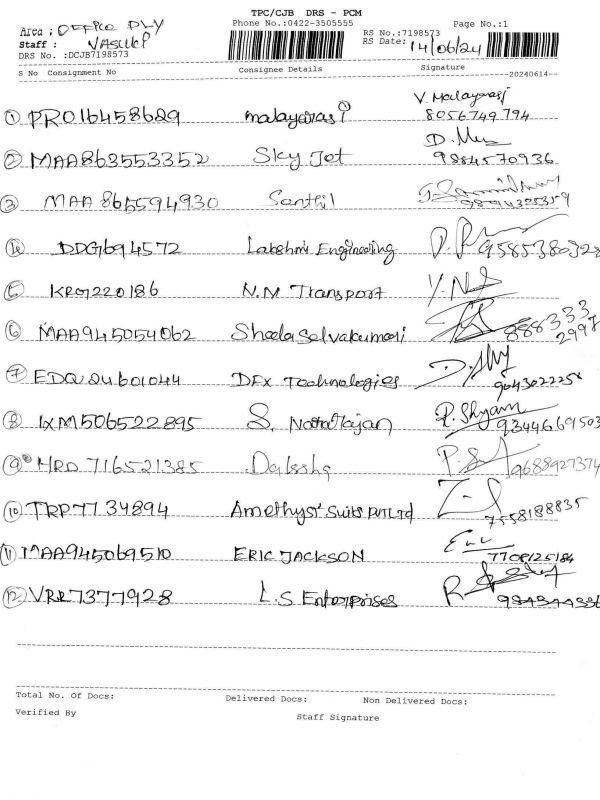 TPC/CJB DRS - PCM
Area : OFFICE DLY Phone No.:0422-3505555 RS No.:7198573 Page No.:1
Staff : VASUKI RS Date: 14/06/24
DRS No. :DCJB7198573
S No Consignment No Consignee Details Signature
20240614
V. Malayarasi
1 PRO16458629 malayarasi 8056749794
2 MAA863553352 Sky Jet D. 9884570936
3 MAA 865594930 Senthil
DDG1694572 Lakshmi Engineering 9585380328
5 KRG220186 N.M Transport
6 MAA945054062 Sheela Selvakumari 888333
2997
7 EDQ24601044 DFX Technologies
8 IXM506522895 S. Natarajan R. Shyam 9344669503
9 HRD 716521385 Daksha 9688927374
10 TRP7734894 Amethyst Suits PVT Ltd 7558188835
11 MAA945069510 ERIC JACKSON 7708125184
12 VRR7377928 L.S Enterprises
Total No. Of Docs: Delivered Docs: Non Delivered Docs:
Verified By Staff Signature